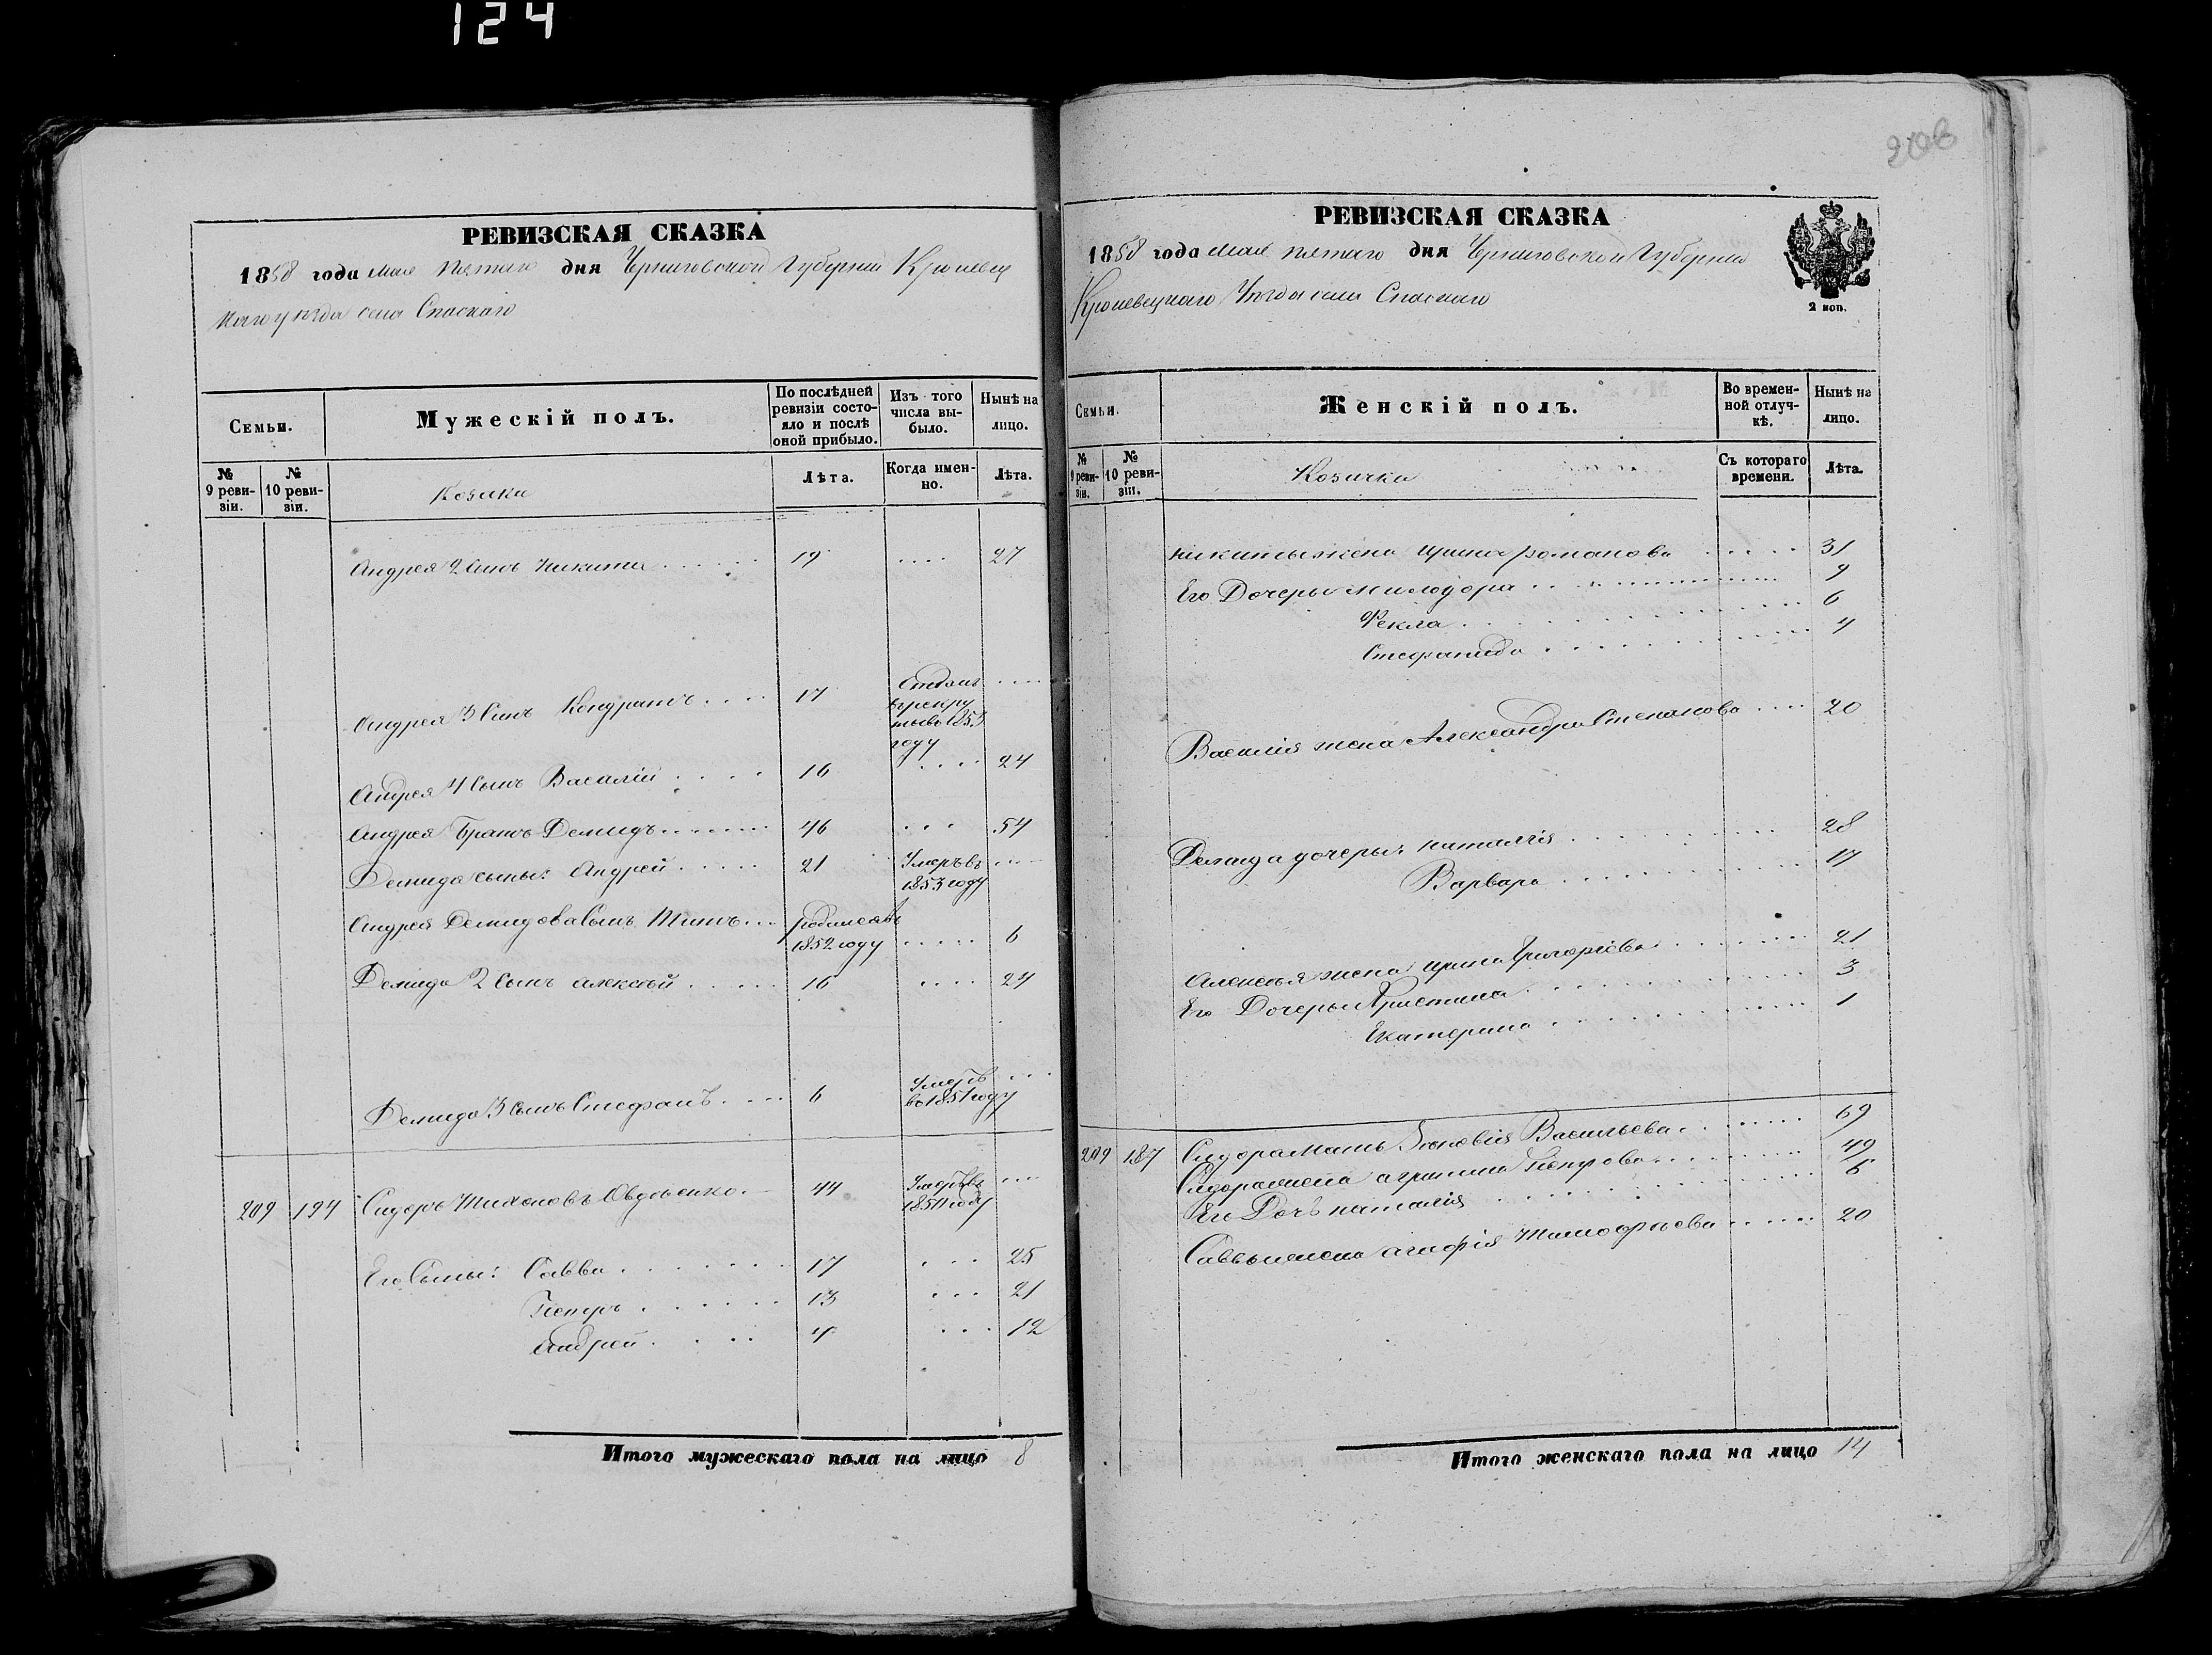 124
208
РЕВИЗСКАЯ СКАЗКА
1858 года мая пятаго дня Черниговской Губерніи Кролевец
каго уѣзда села Спаскаго
Семьи.
Мужескій полъ.
По послѣдней ревизіи состояло и послѣ оной прибыло.
Изъ того числа выбыло.
Нынѣ на лицо.
№ 9 ревизіи.
№ 10 ревизіи.
Козаки
Лѣта.
Когда именно.
Лѣта.
Андрея 2 сынъ Никита . . . . . . 19 . . . . 27
Андрея 3 Сынъ Кондратъ . . . . 17 Отданъ в рекруты во 1853 году . . . .
Андрея 4 Сынъ Василій . . . . 16 . . . . 24
Андрея Братъ Демидъ . . . . . . . 46 . . . 54
Демида сыны: Андрей . . . . . 21 Умеръ въ 1853 году . . . .
Андрея Демидова Сынъ Титъ . . . родился въ 1852 году . . . . . 6
Демида 2 Сынъ Алексѣй . . . . . 16 . . . . 24
Демида 3 Сынъ Стефанъ . . . . 6 Умеръ во 1851 году . . . .
209 194 Сидоръ Тихоновъ Авдѣенко . 44 Умеръ въ 1851 году . . . .
Его Сыны: Савва . . . . . . . 17 . . . 25
Петръ . . . . . . 13 . . . 21
Андрей . . . . 4 . . . 12
Итого мужескаго пола на лицо 8
РЕВИЗСКАЯ СКАЗКА
1858 года мая пятаго дня Черниговской Губерніи
Кролевецкаго Уѣзда села Спаскаго
2 коп.
Семьи.
Женскій полъ.
Во временной отлучкѣ.
Нынѣ на лицо.
№ 9 ревизіи.
№ 10 ревизіи.
Козачки
Съ котораго времени.
Лѣта.
Никиты жена Ирина Романова . . . . . 31
Его Дочеры Милодора . . . . . . . . . . 9
Фекла . . . . . . . . . . 6
Стефанида . . . . . . . . . . 4
Василія жена Александра Степанова . . . . 20
Демида дочеры: Наталія . . . . . . . . . . 28
Варвара . . . . . . . . . . 17
Алексѣя жена Ирина Григоріева . . . . . . . 21
Его Дочеры Христина . . . . . . . . . . 3
Екатерина . . . . . . . . . . 1
209 187 Сидора Мать Зѣновія Васильева . . . . . . . 69
Сидора жена Агрипина Петрова . . . . . . . . 49
Его Дочь Наталія . . . . . . . . . . 6
Саввы жена Агафія Тимофѣева . . . . . . 20
Итого женскаго пола на лицо 14